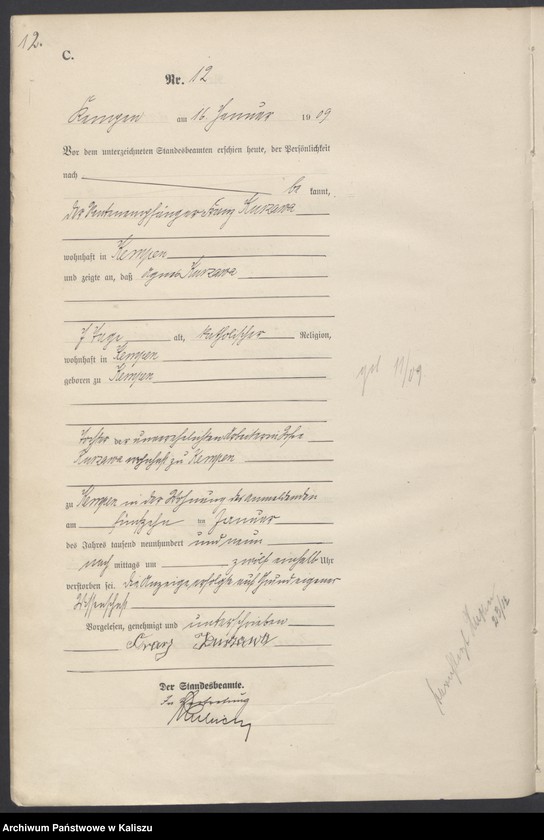 12.
C.
Nr. 12
Kempen am 16 Januar 1909
Vor dem unterzeichneten Standesbeamten erschien heute, der Persönlichkeit
nach be kannt,
der Rentenempfänger Franz Kurzawa
wohnhaft in Kempen
und zeigte an, daß Agnes Kurzawa
7 Tage alt, katholischer Religion,
wohnhaft in Kempen
geboren zu Kempen
geb 11/09
Tochter der unverehelichten Arbeiterin
Kurzawa wohnhaft zu Kempen
zu Kempen in der Wohnung des Anmeldenden
am fünfzehn ten Januar
des Jahres tausend neunhundert und neun
nach mittags um zwölf einhalb Uhr
verstorben sei. Die Anzeige erfolgte auf Grund eigener
Wissenschaft
Vorgelesen, genehmigt und unterschrieben
Franz Kurzawa
Der Standesbeamte.
In Vertretung
Archiwum Państwowe w Kaliszu